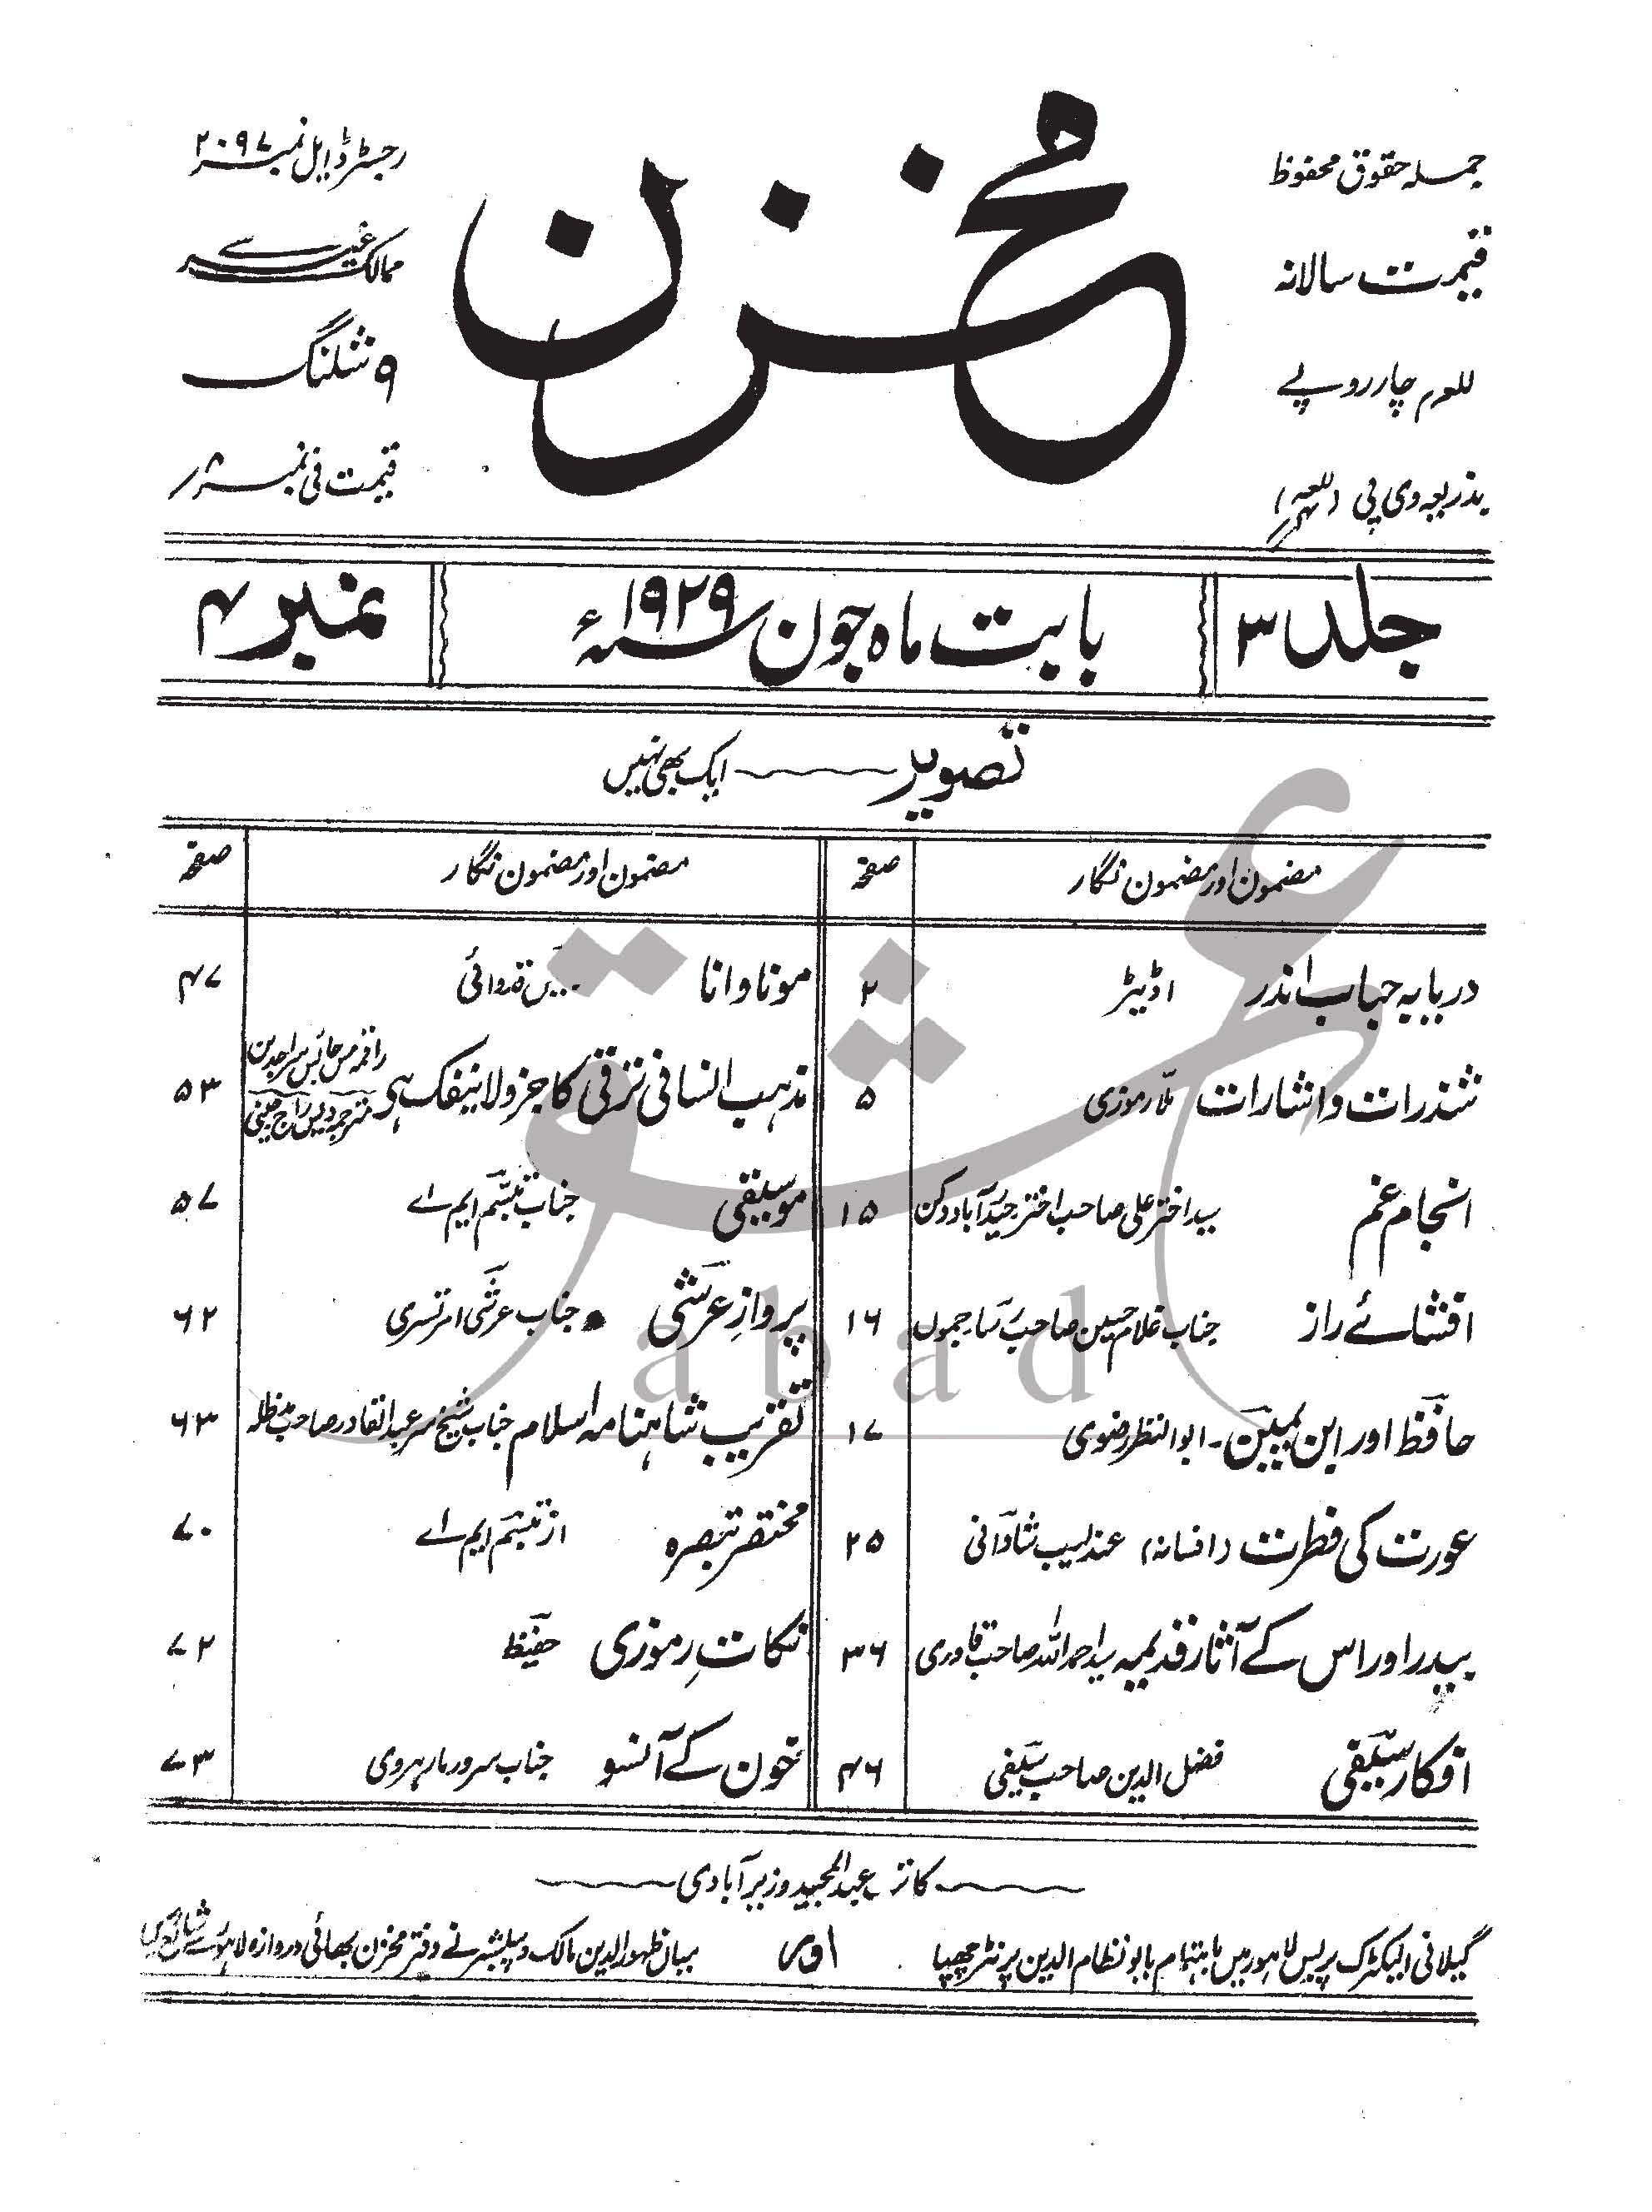 جملہ حقوق محفوظ
قیمت سالانہ
چار روپے
بذریعہ وی پی
مخزن
رجسٹرڈ ایل نمبر ۲۰۹۷
ممالک غیر سے
۹ شلنگ
قیمت فی نمبر ۸؍
جلد ۳
بابت ماہ جون سنہ ۱۹۲۹ء
نمبر ۴
تصویر ایک بھی نہیں
مضمون اور مضمون نگار صفحہ
دریا بہ حباب اندر اڈیٹر ۲
شذرات و اشارات ملّا رموزی ۵
انجام غم سید اختر علی صاحب اختر حیدآباد دکن ۱۵
افشائے راز جناب غلام حسین صاحب جموں ۱۶
حافظ اور ابن یمین۔ ابو النظر رضوی ۱۷
عورت کی فطرت (افسانہ) عندلیب شادانی ۲۵
بیدر اور اس کے آثار قدیمہ سید احمد اللہ صاحب قادری ۳۶
افکار سیفی فضل الدین صاحب سیفی ۴۶
مضمون اور مضمون نگار صفحہ
مونا وانا قدوائی ۴۷
مذہب انسانی ترقی کا جزو لاینفک ہی ۵۳
موسیقی جناب تبسم ایم اے ۵۷
پرواز عرشی جناب عرشی امرتسری ۶۲
تقریب شاہنامہ اسلام جناب شیخ سر عبدالقادر صاحب مدظلہ ۶۳
مختصر تبصرہ از تبسم ایم اے ۷۰
نکاتِ رموزی حفیظ ۷۲
خون کے آنسو جناب سرور مارہروی ۷۳
کاتب عبدالمجید وزیر آبادی
گیلانی الیکٹرک پریس لاہور میں باہتمام بابو نظام الدین پرنٹر چھپا اور میاں ظہور الدین مالک و پبلشر نے دفتر مخزن بھاٹی دروازہ لاہور سے شائع
عشق
abad